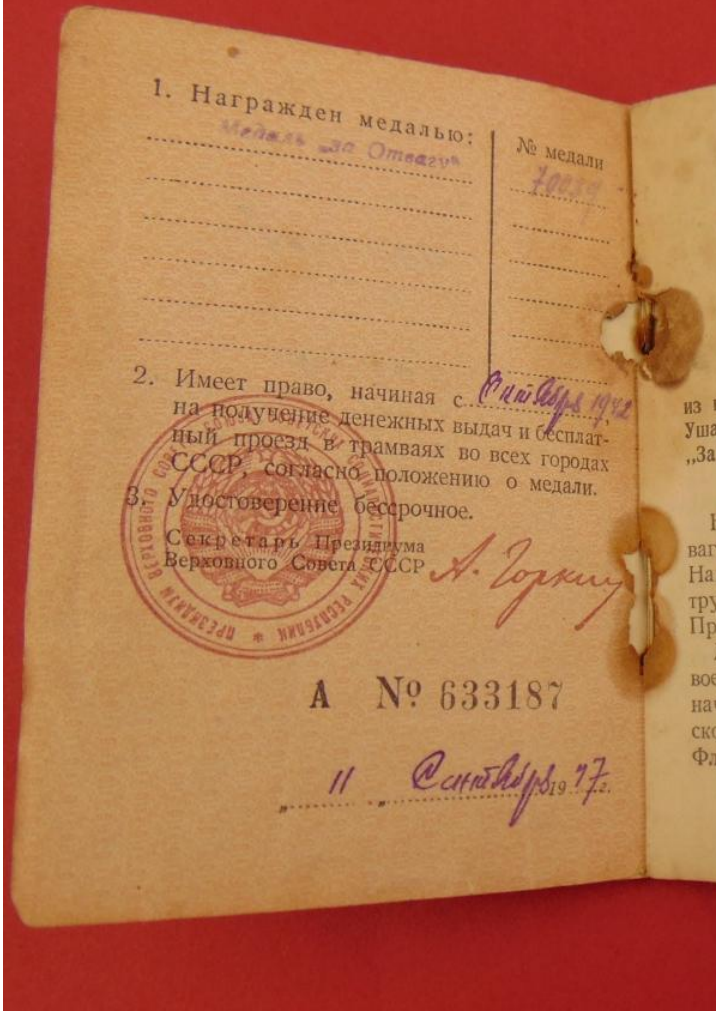 1. Награжден медалью:
№ медали
Медаль „за Отвагу“
70039
2. Имеет право, начиная с Сентября 1942,
на получение денежных выдач и бесплат-
ный проезд в трамваях во всех городах
СССР, согласно положению о медали.
3. Удостоверение бессрочное.
Секретарь Президиума
Верховного Совета СССР
А. Горкин
ПРЕЗИДИУМ ВЕРХОВНОГО СОВЕТА СОЮЗА СОВЕТСКИХ СОЦИАЛИСТИЧЕСКИХ РЕСПУБЛИК
А № 633187
„ 11 „ Сентября 1947 г.
из
Уша
„За
ваг
На
тру
Пр
вое
нач
ско
Фл